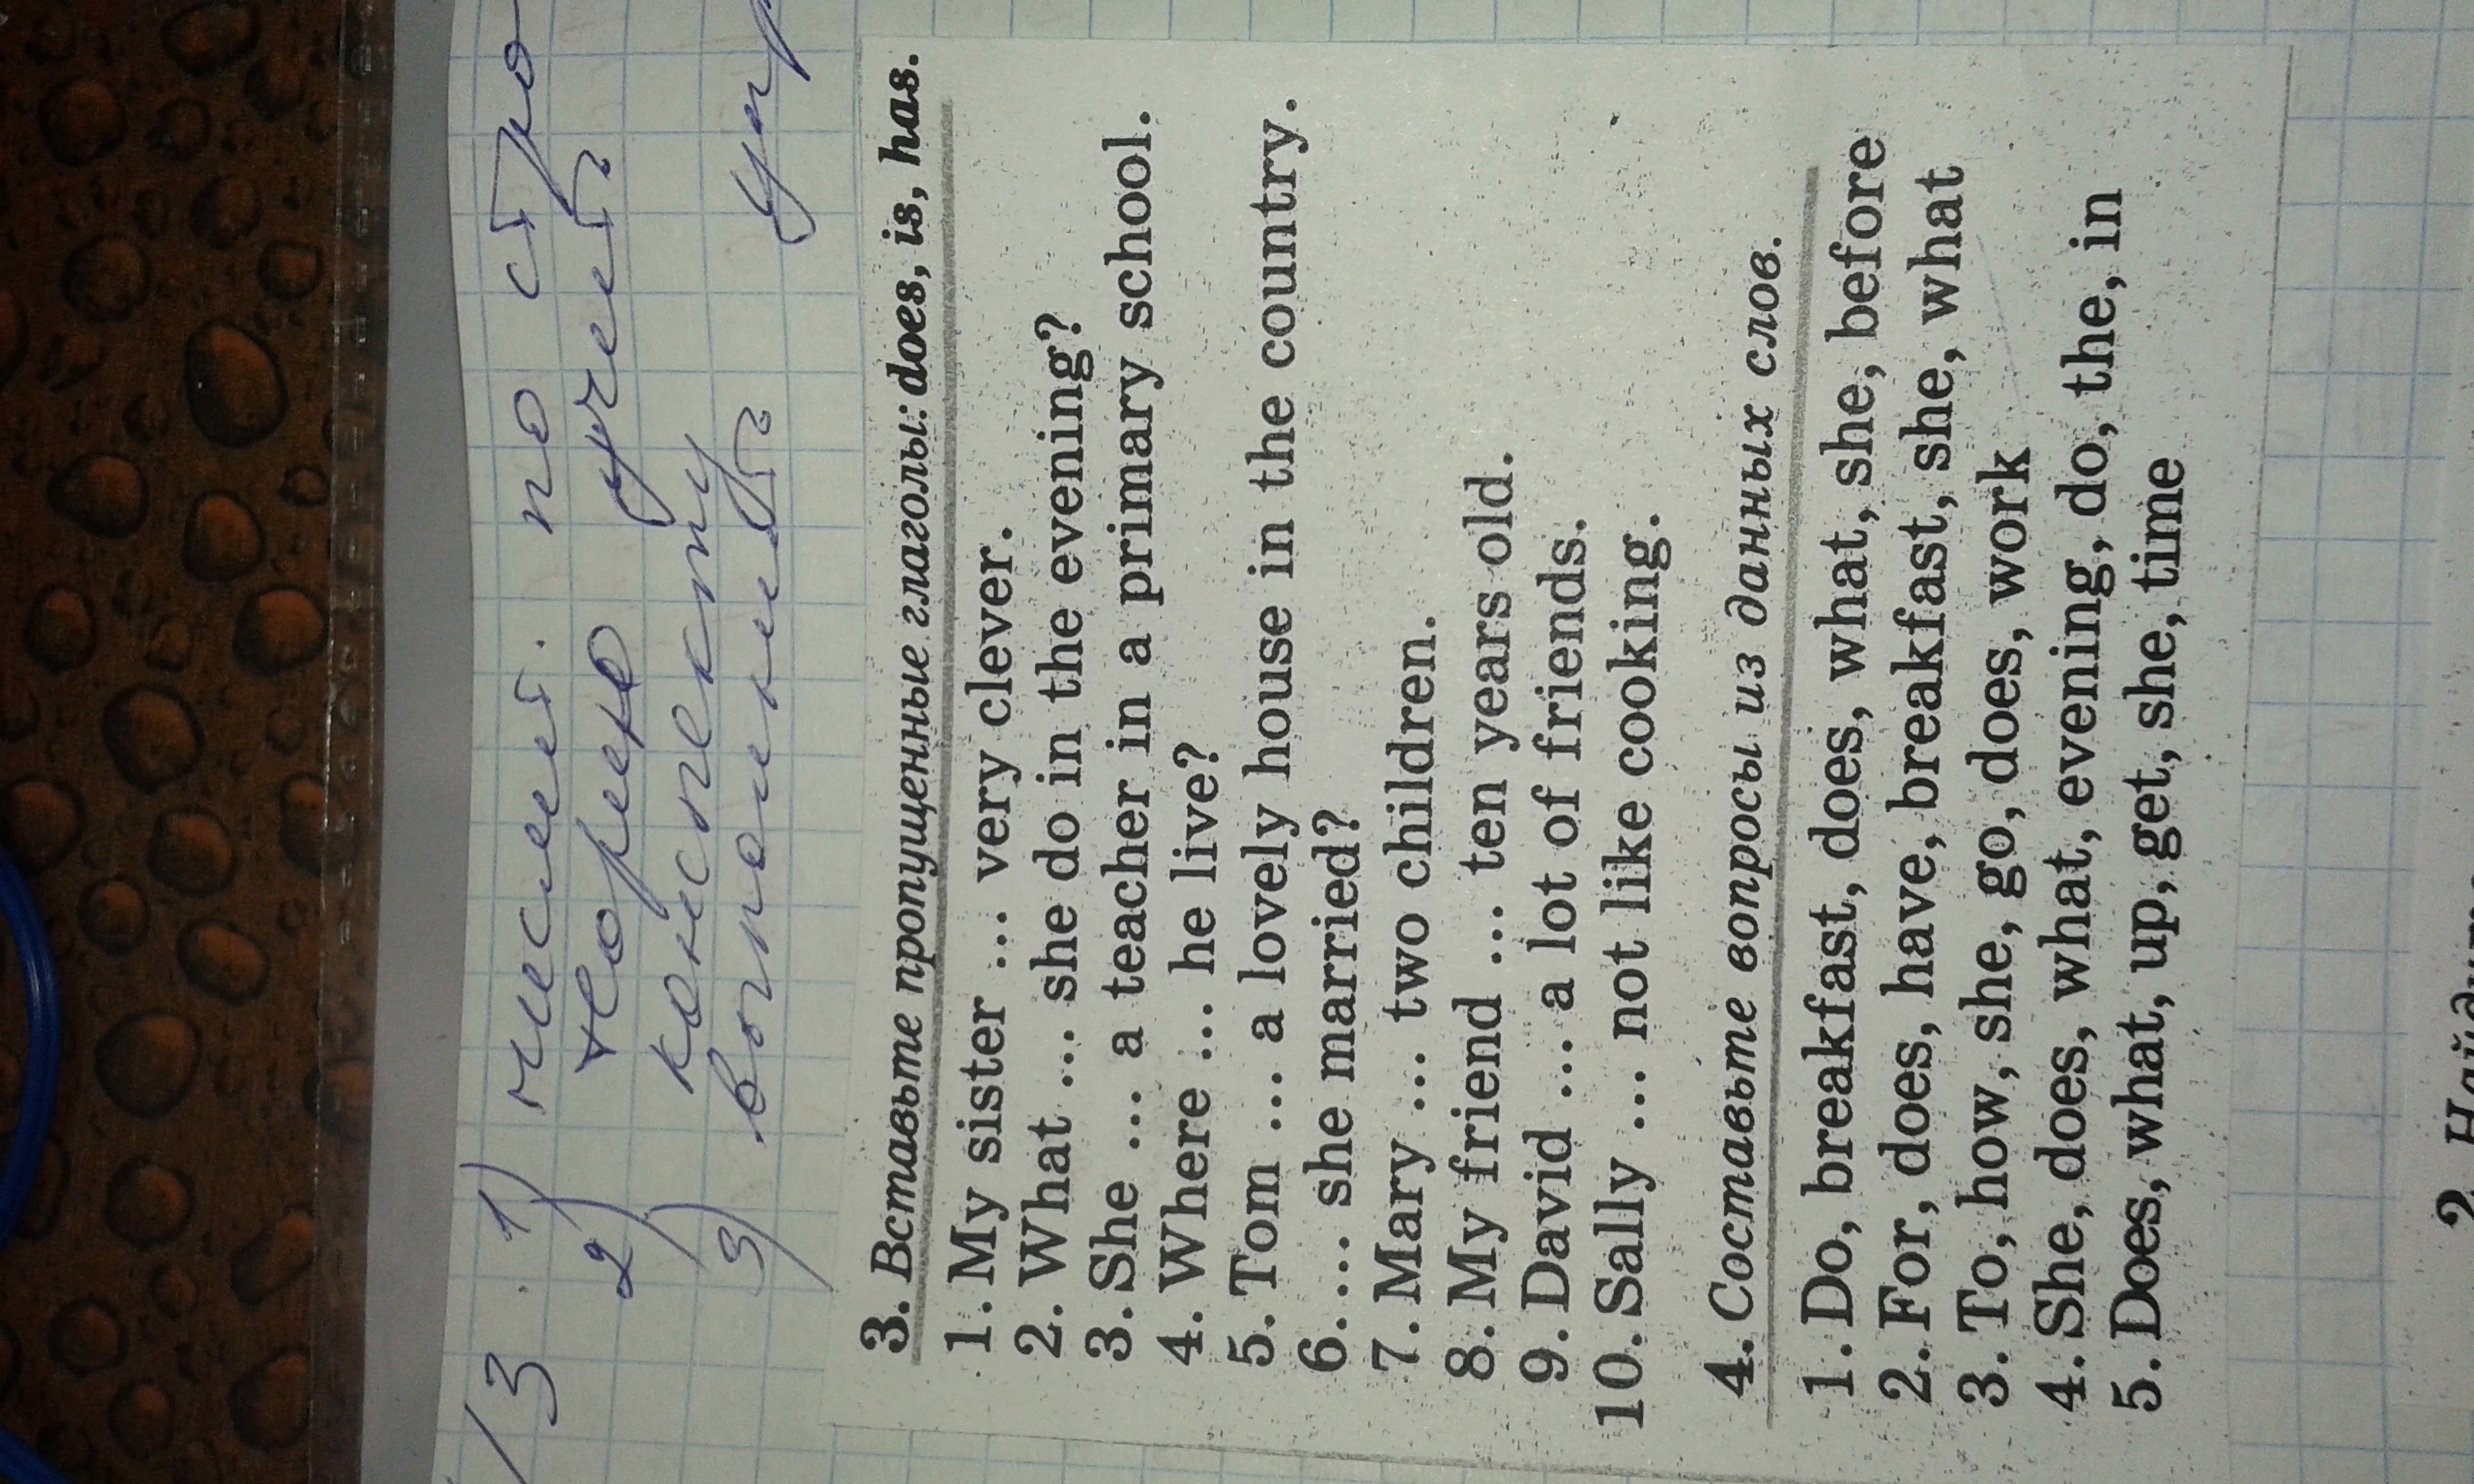 /З 1) письм. по стро
2) теорию учить
конспекту
3) выполнить упр
3. Вставьте пропущенные глаголы: does, is, has.
1. My sister ... very clever.
2. What ... she do in the evening?
3. She ... a teacher in a primary school.
4. Where ... he live?
5. Tom ... a lovely house in the country.
6. ... she married?
7. Mary ... two children.
8. My friend ... ten years old.
9. David ... a lot of friends.
10. Sally ... not like cooking.
4. Составьте вопросы из данных слов.
1. Do, breakfast, does, what, she, before
2. For, does, have, breakfast, she, what
3. To, how, she, go, does, work
4. She, does, what, evening, do, the, in
5. Does, what, up, get, she, time
2 Найдите